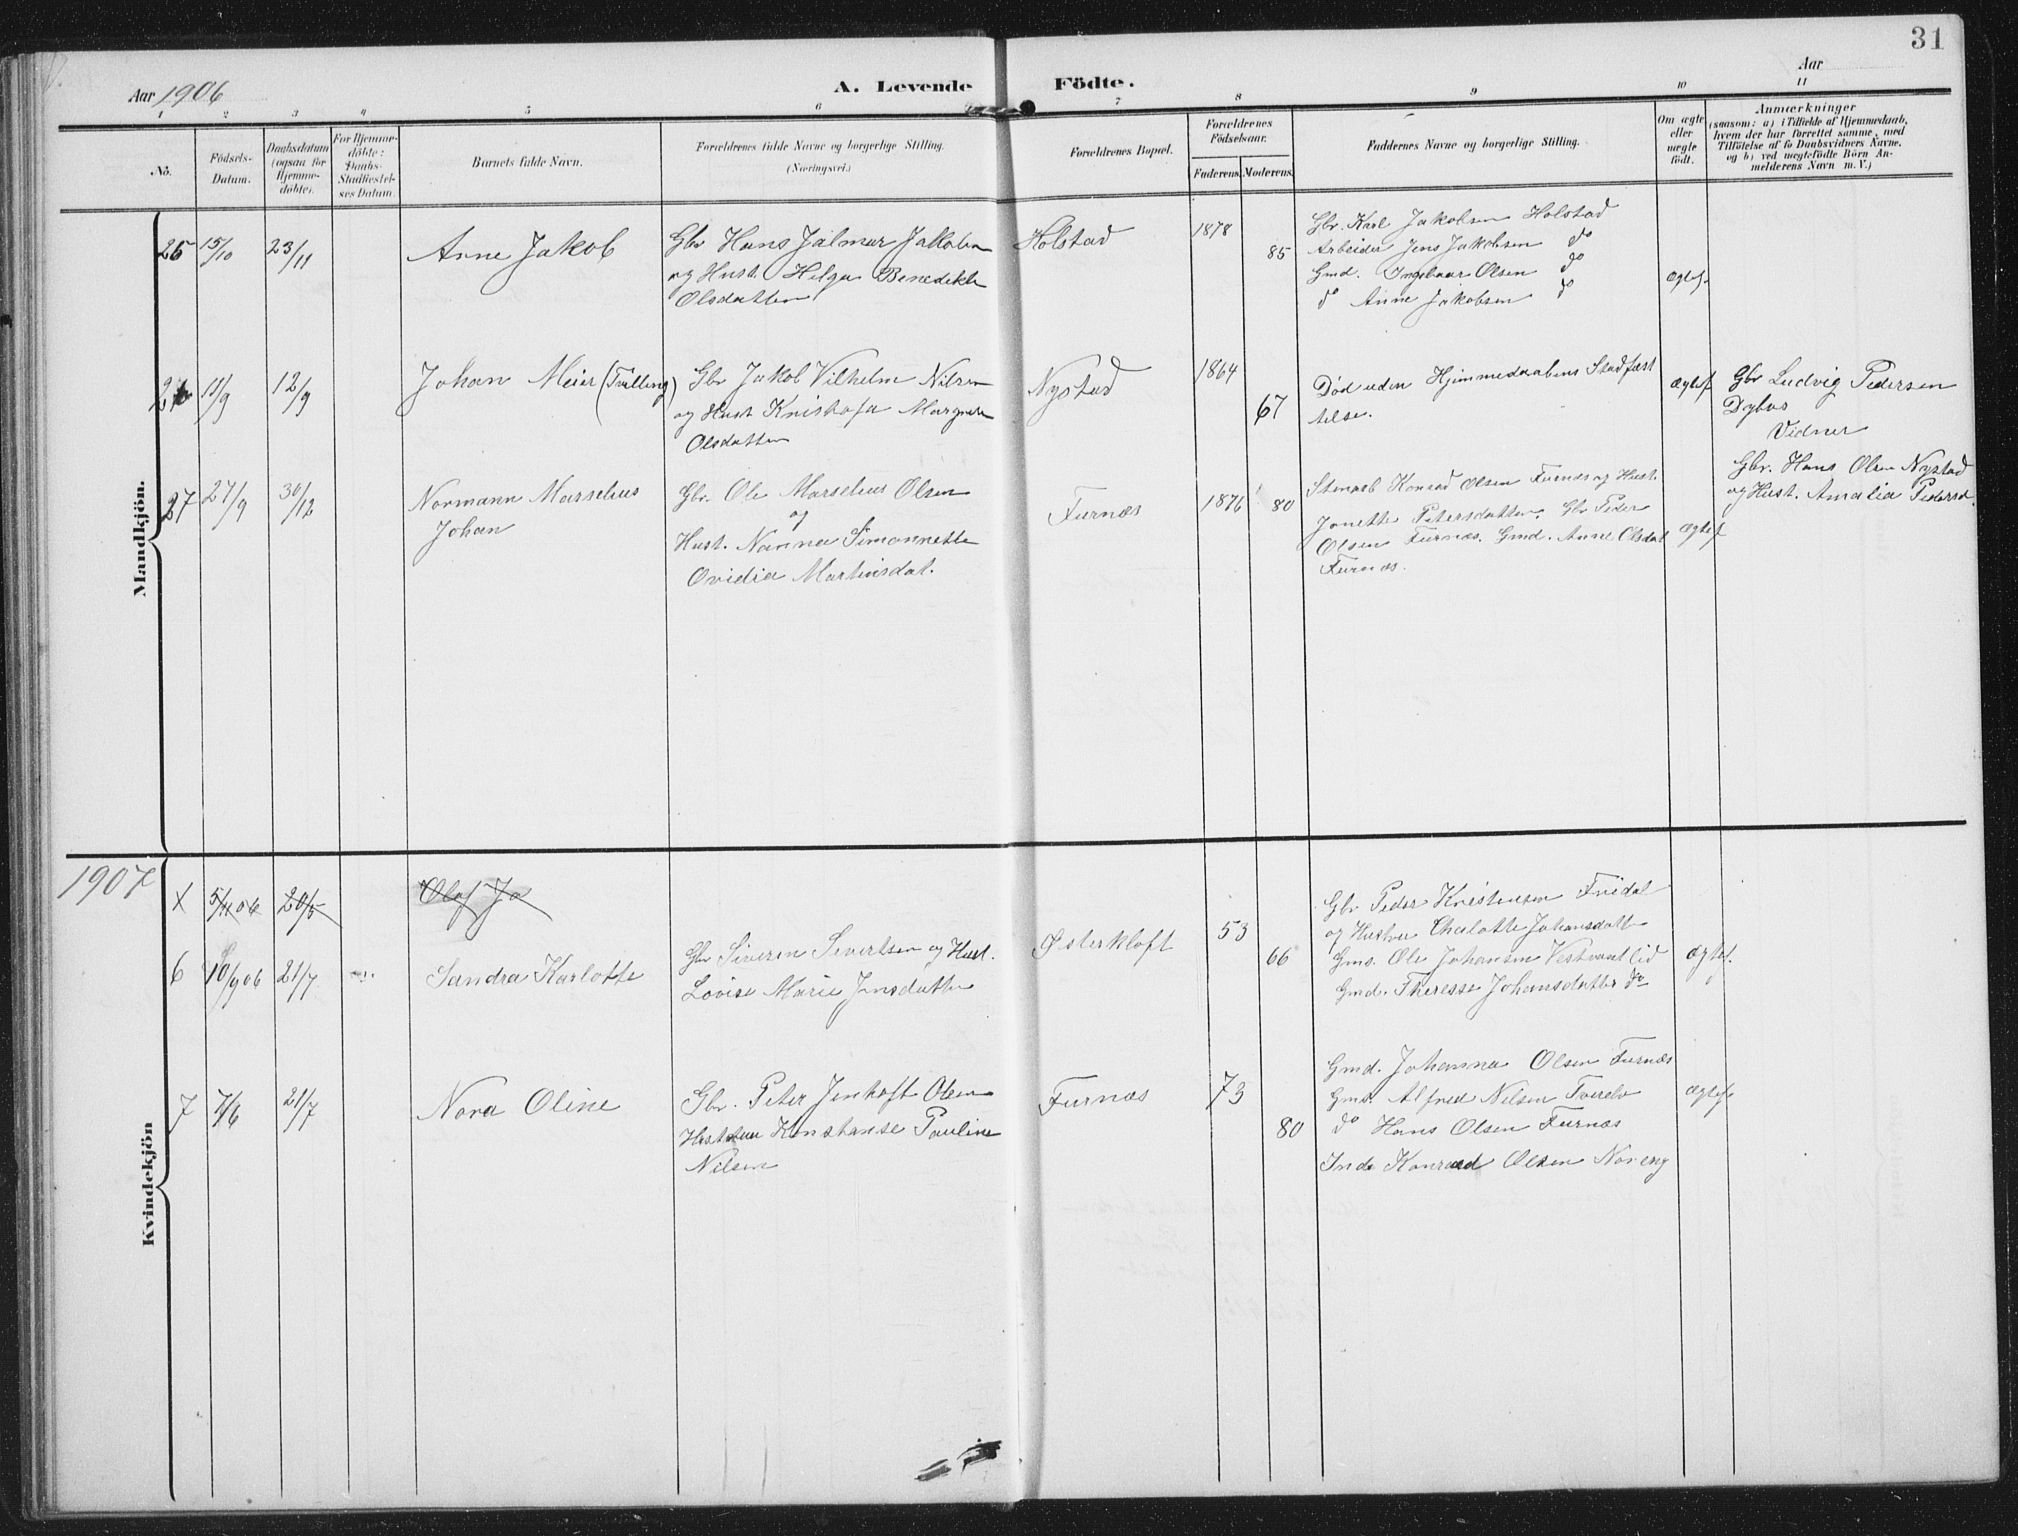 31
Aar 1906
A. Levende Födte.
Aar
1 2 3 4 5 6 7 8 9 10 11
No.
Födsels-
Datum.
Daabsdatum
(ogsaa for
Hjemme-
döbte).
For Hjemme-
döbte:
Daabs-
Stadfæstel-
ses Datum.
Barnets fulde Navn.
Forældrenes fulde Navne og borgerlige Stilling.
(Næringsvei.)
Forældrenes Bopæl.
Forældrenes
Födselsaar.
Faderens. Moderens.
Faddernes Navne og borgerlige Stilling.
Om ægte
eller
uægte
födt.
Anmærkninger
(saasom: a) i Tilfælde af Hjemmedaab,
hvem der har forrettet samme, med
Tilföielse af to Daabsvidners Navne,
og b) ved uægtefödte Börn An-
melderens Navn m. V.)
Mandkjön.
25 15/10 23/11
Arne Jakob
Gbr Hans Jalmar Jakobsen
og Hust. Helga Benedikte
Olsdatter
Holstad
1878
85
Gbr. Karl Jakobsen Holstad
Arbeider Jens Jakobsen do
Gmd. Ingebaar Olsen do
do Anne Jakobsen do
ægtef.
26 11/9 12/9
Johan Meier (Tvilling)
Gbr Jakob Vilhelm Nilsen
og Hust Kristofa Margrete
Olsdatter
Nystad
1864
67
Død uden Hjemmedaabens Stadfæst
telse.
ægtef
Gbr Ludvig Pedersen
Dybos
Vidner
Gbr. Hans Olsen Nystad
og Hust. Amalia Pedersd.
27 27/9 30/12
Normann Marselius
Johan
Gbr. Ole Marselius Olsen
og
Hust. Nanna Simonnette
Ovidia Martinsdat.
Furnæs
1876 80
Stenarb Konrad Olsen Furnæs og Hust.
Jonette Petersdatter. Gbr Peder
Olsen Furnæs. Gmd. Anne Olsdat
Furnæs.
ægtef
1907
Kvindekjön
X 5/11 06 20/5
Olaf Jo
6 10/9 06 21/7
Sandra Karlotte
Gbr Siveren Sivertsen og Hust.
Lovise Marie Jensdatter
Østerkloft
53
66
Gbr Peder Kristensen Fridal
og Hustru Chalotte Johansdatter
Gms. Ole Johansen Vestvatlid
Gmd. Therese Johansdatter do
ægtef.
7 7/6 21/7
Nora Oline
Gbr. Peter Jenhoft Olsen
Hustru Konstanse Pauline
Nilsen
Furnæs
73
80
Gmd. Johanna Olsen Furnæs
Gms. Alfred Nilsen Tverelv
do Hans Olsen Furnæs
Inds Konrad Olsen Noreng
ægtef.